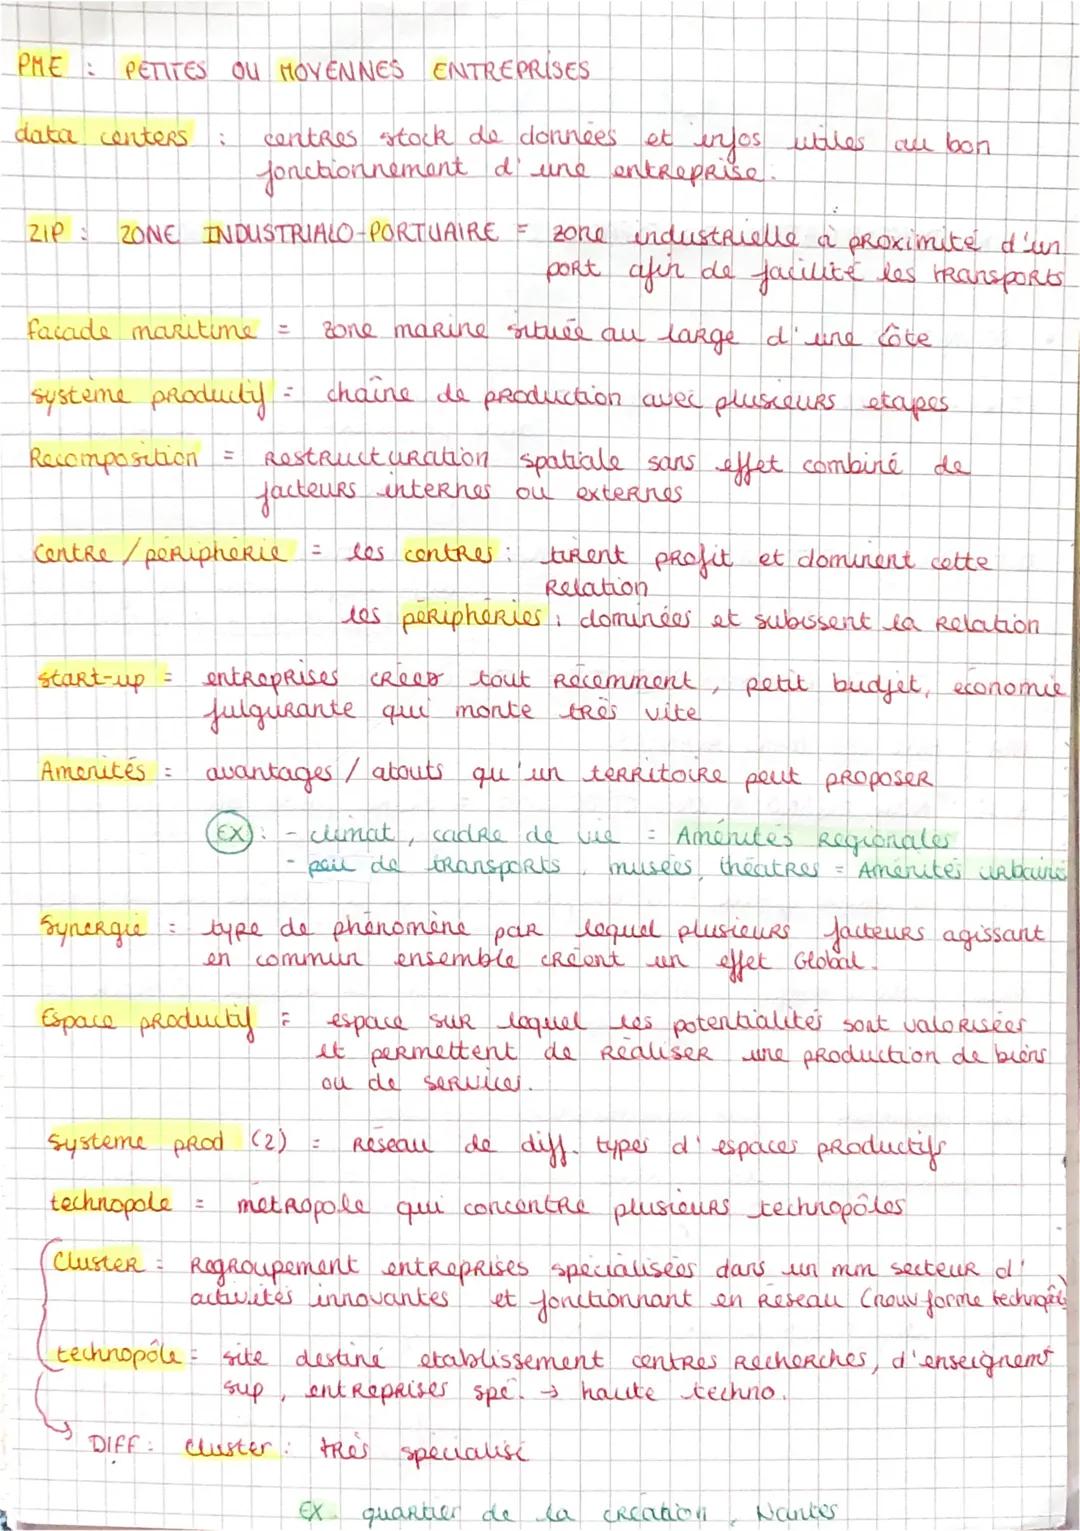 PME : PETITES OU MOYENNES ENTREPRISES
data centers : centres stock de données et infos utiles au bon
fonctionnement d'une entreprise.
ZIP : ZONE INDUSTRIALO-PORTUAIRE = zone industrielle à proximité d'un
port afin de facilité les transports
façade maritime = zone marine située au large d'une côte
système productif = chaîne de production avec plusieurs etapes
Recomposition = Restructuration spatiale sans effet combiné de
facteurs internes ou externes
Centre / périphérie = les centres : tirent profit et dominent cette
Relation
les périphéries : dominées et subissent la Relation
start-up = entreprises créer tout récemment, petit budjet, économie
fulgurante qui monte très vite
Amenités = avantages / atouts qu'un territoire peut proposer
EX : - climat, cadre de vie = Aménités Régionales
- peu de transports, musées, théatres = Aménités urbaine
Synergie = type de phénomène par lequel plusieurs facteurs agissant
en commun ensemble créent un effet Global.
Espace productif = espace sur lequel les potentialités sont valorisées
et permettent de Réaliser une production de biens
ou de services.
système prod (2) = Réseau de diff. types d'espaces productifs
technopole = métropole qui concentre plusieurs technopôles
Cluster = Regroupement entreprises spécialisées dans un mm secteur d'
activités innovantes et fonctionnant en Réseau (nouv forme technopôle)
technopôle = site destiné etablissement centres Recherches, d'enseignemt
sup, entreprises spé. → haute techno.
DIFF : Cluster : très spécialisé
EX quartier de la création, Nantes